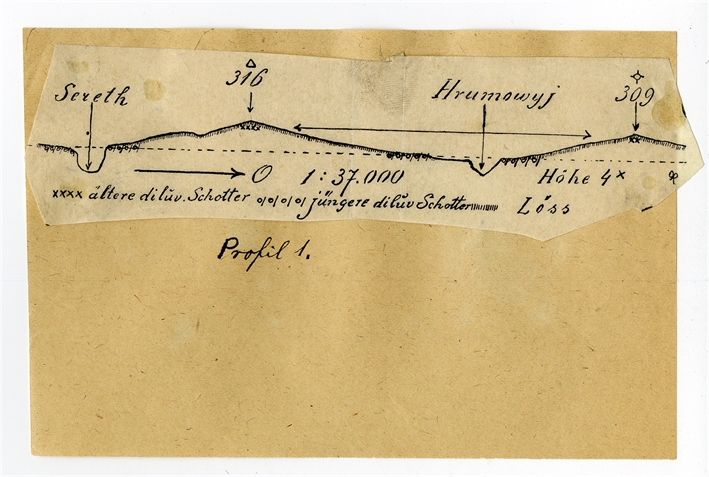 Sereth
316
Hrumowyj
309
O 1:37.000 Höhe 4×
×××× ältere dilüv. Schotter o/o/o/o jüngere dilüv Schotter Löss
Profil 1.